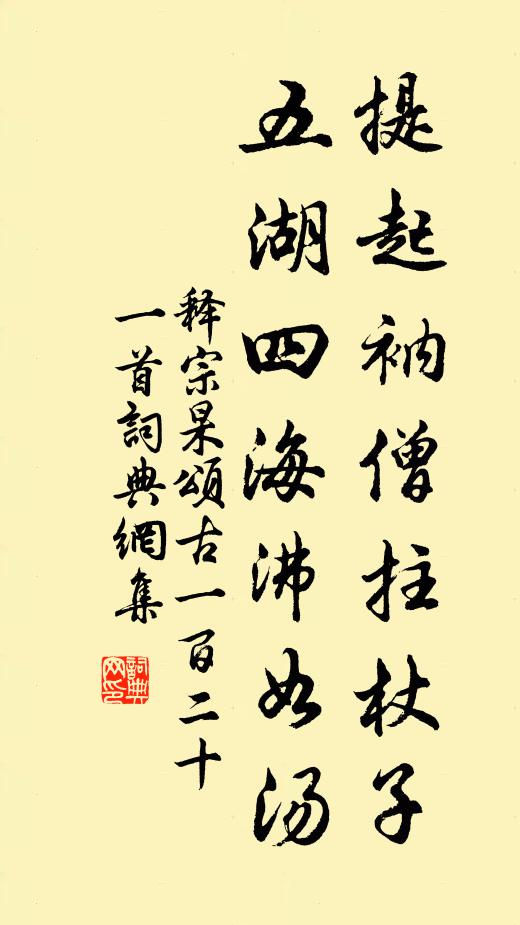 提起衲僧拄杖子
五湖四海沸如汤
释宗杲頌古一百二十
一首詞典網集
詞典網印